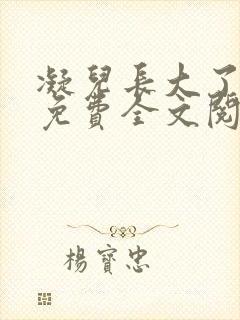 凝兒長大了
免費全文閱
楊寶忠